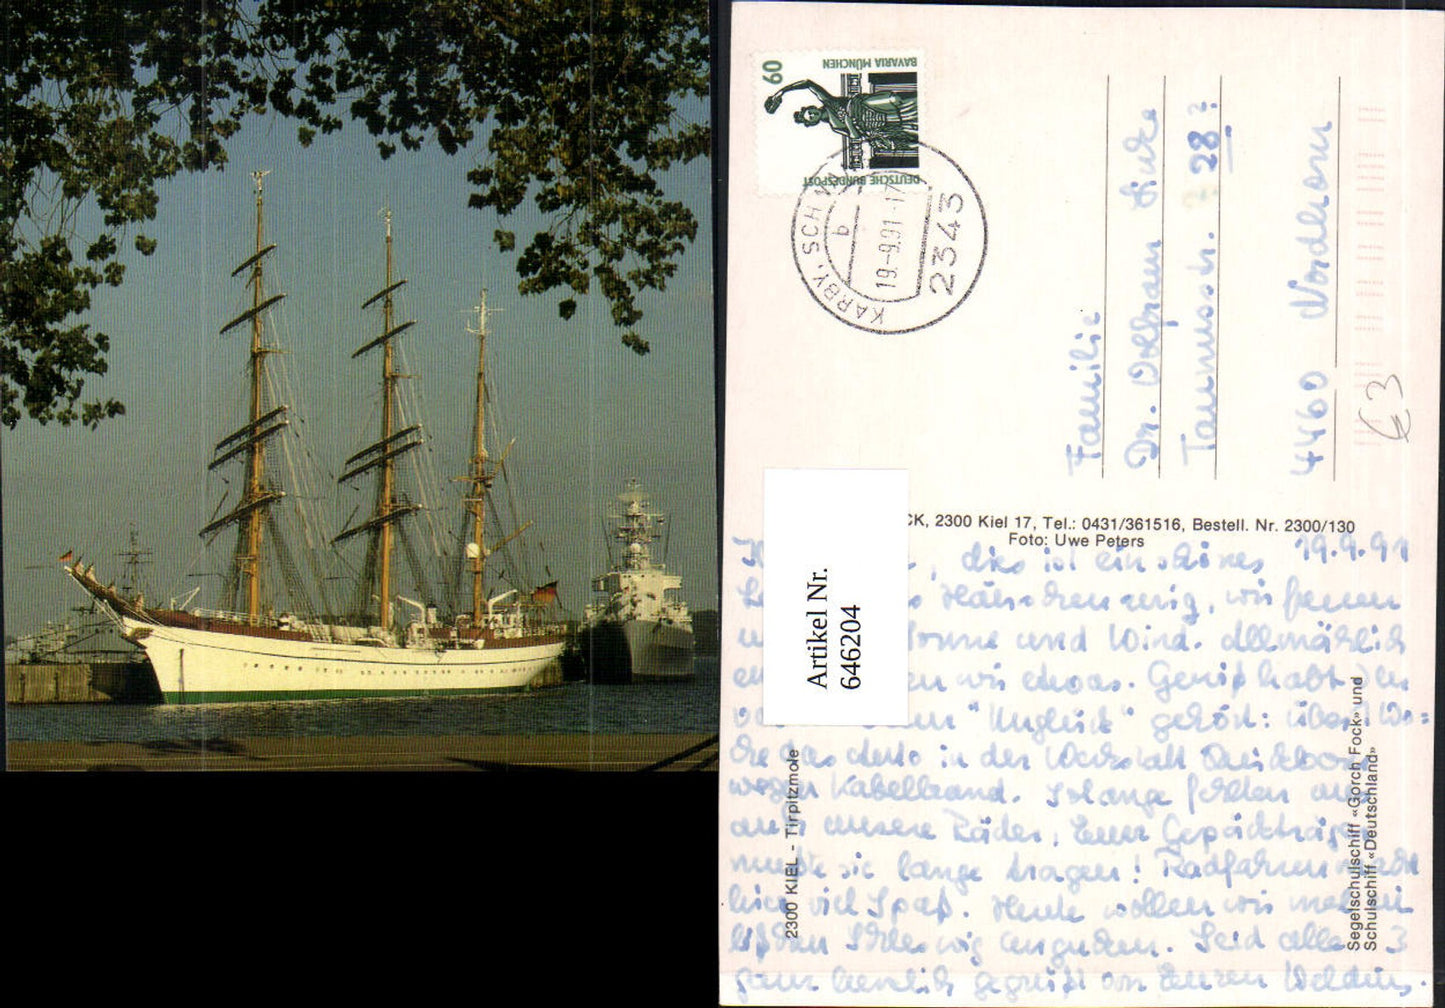 60
BAVARIA MÜNCHEN
DEUTSCHE BUNDESPOST
KARBY, SCHW
b
19.-9.91-17
2343
Familie
Dr. Wolfram
Taunusstr. 28?
4460 Nordhorn
€3
CK, 2300 Kiel 17, Tel.: 0431/361516, Bestell. Nr. 2300/130
Foto: Uwe Peters
Artikel Nr.
646204
2300 KIEL - Tirpitzmole
Segelschulschiff «Gorch Fock» und
Schulschiff «Deutschland»
19.9.91
, dies ist ein schönes
Häuschen wir freuen
Sonne und Wind. Allmählich
wir etwas. Gewiß habt Ihr
"Unglück" gehört: über Wo=
che das Auto in der Werkstatt
wegen Kabelbrand. Solange fehlten uns
auch unsere Räder, Eure Gepäckträger
mußte sie lange tragen! Radfahren macht
hier viel Spaß. Heute wollen wir mal ein
bißchen Schleswig angucken. Seid alle 3
ganz herzlich gegrüßt von Euren